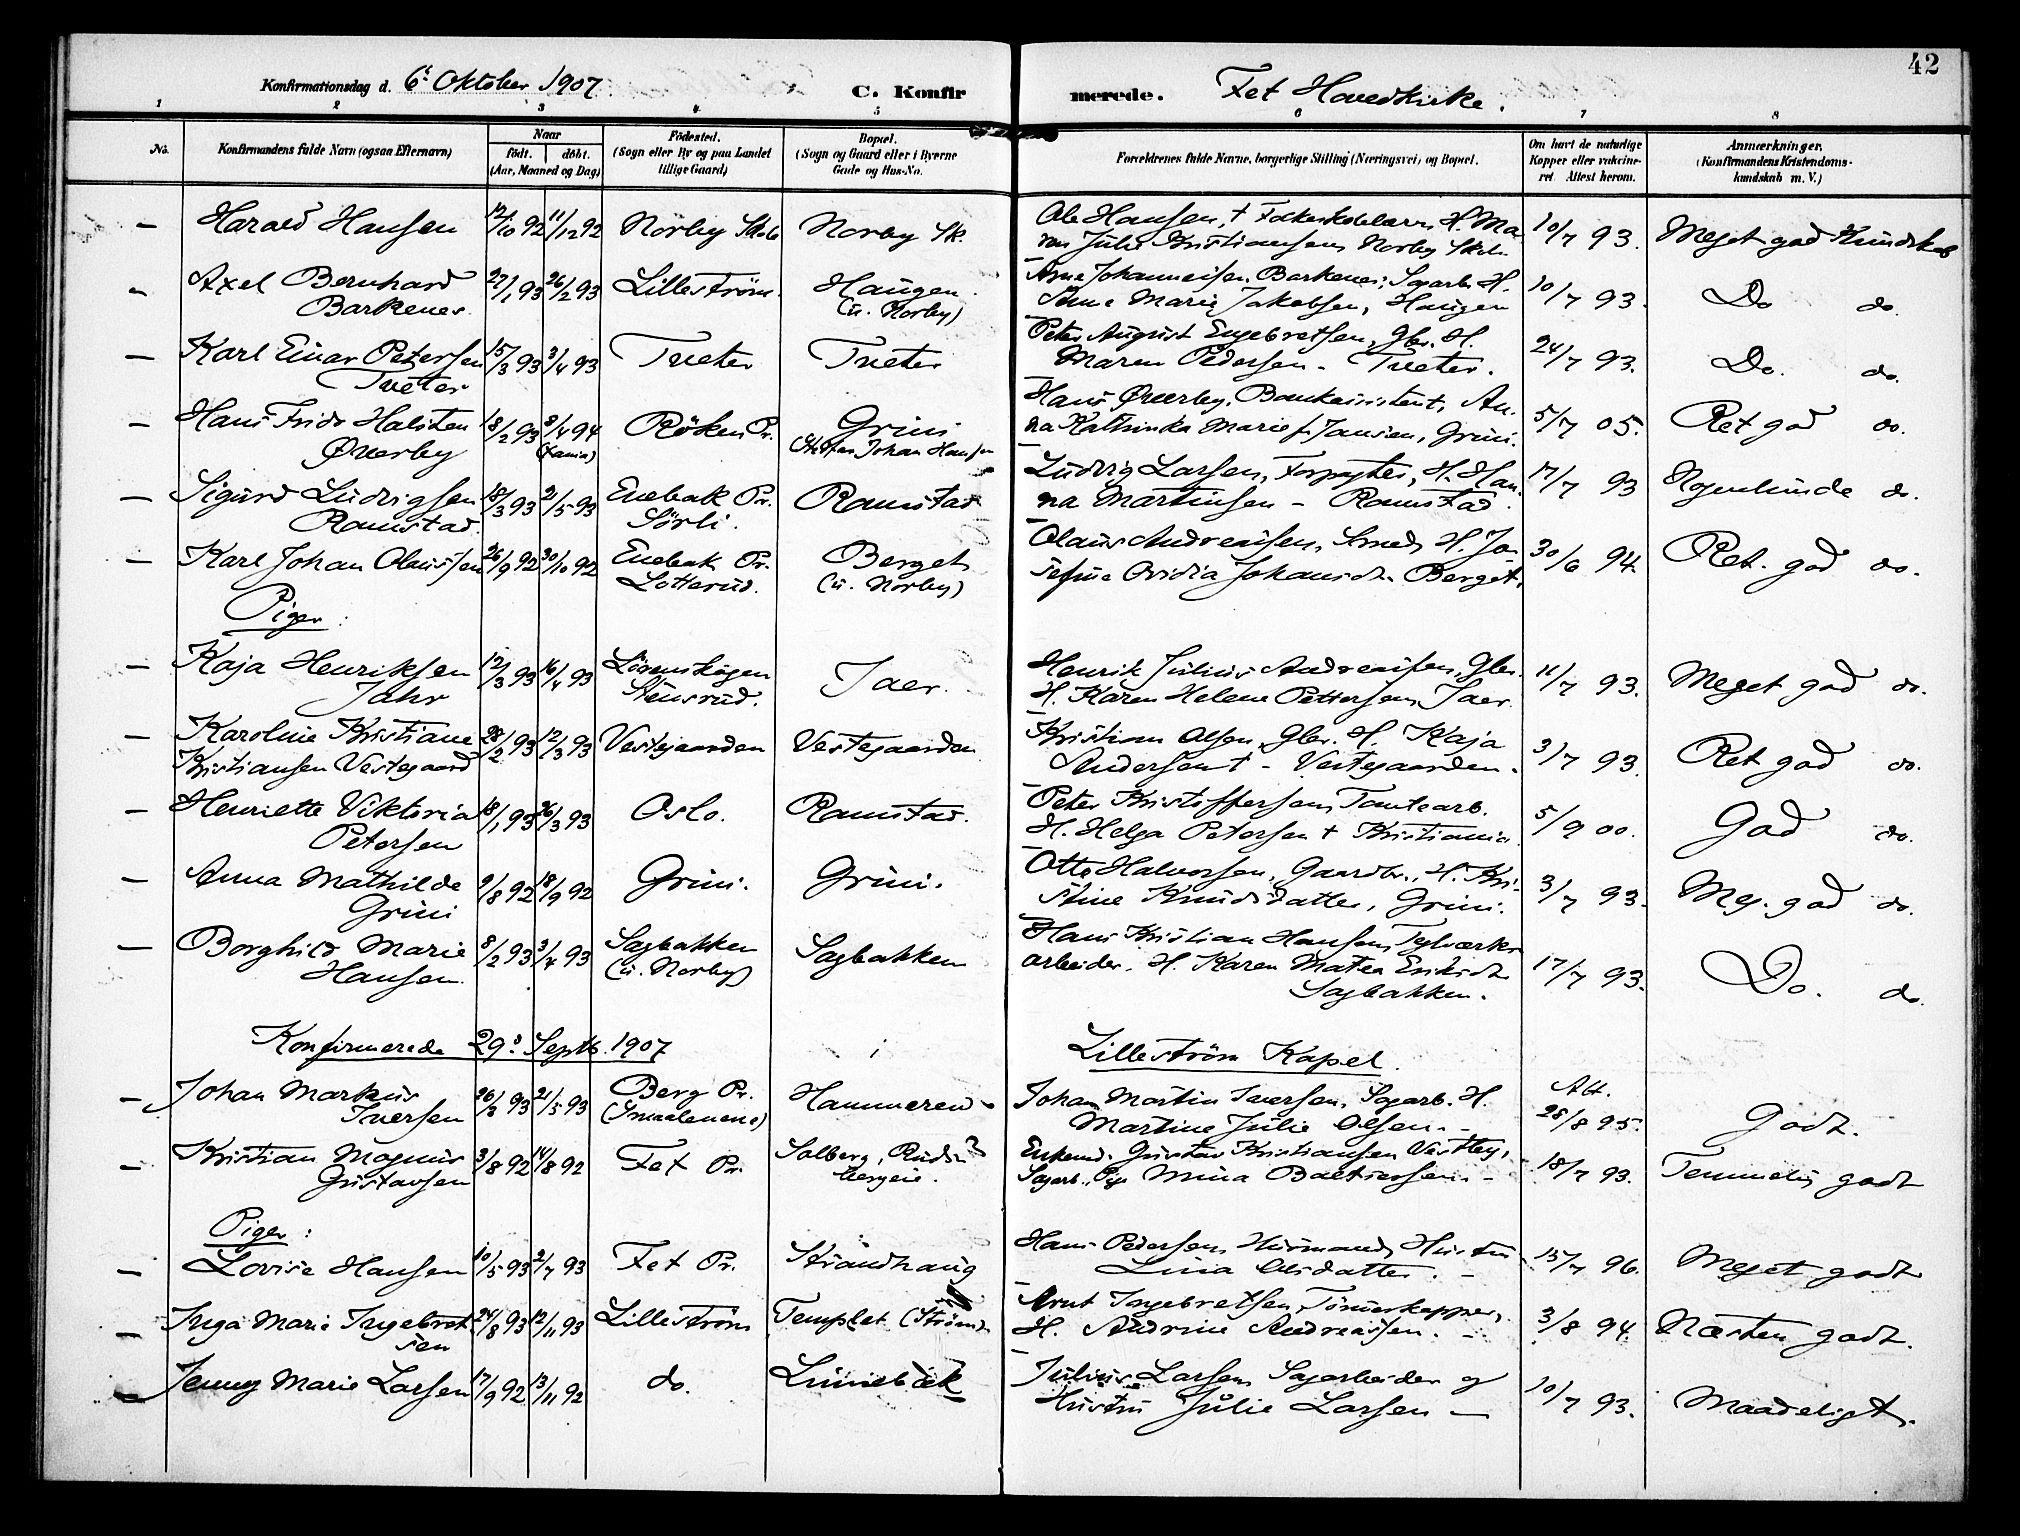 42
Konfirmationsdag d. 6te Oktober 1907. C. Konfirmerede. Fet Hovedkirke.
1 2 3 4 5 6 7 8
No. Konfirmandens fulde Navn (ogsaa Efternavn) Naar födt. döbt. (Aar, Maaned og Dag) Födested. (Sogn eller By og paa Landet tillige Gaard) Bopæl. (Sogn og Gaard eller i Byerne Gade og Hus-No. Forældrenes fulde Navne, borgerlige Stilling (Næringsvei) og Bopæl. Om havt de naturlige Kopper eller vaksineret. Attest herom. Anmærkninger. (Konfirmandens Kristendomskundskab m. V.)
— Harald Hansen 12/10 92 11/12 92 Norby Skole Norby Sk. Ole Hansen, † Folkeskolelærer, H. Ma- 10/7 93. Meget god Kundskab
ren Julie Kristiansen, Norby Skole
Axel Bernhard 27/1 93 26/2 93 Lilleström. Haugen Arne Johannessen Barkenes, Sagarb. H. 10/7 93. Do do.
Barkenes. (u. Norby) Anne Marie Jakobsen, Haugen
— Karl Einar Petersen 15/3 93 3/4 93 Tveter Tveter Peter August Engebretsen, Gbr. H. 24/7 93. Do. do.
Tveter Maren Pedersen - Tveter.
— Hans Frido Halsten 18/2 93 8/4 94 Röken Pr. Grini Hans Øverby, Bankassistent, An- 5/7 05. Ret god do.
Øverby Johan Hansen na Kathinka Marie f. Jansen, Grini.
— Sigurd Ludvigsen 18/3 93 21/5 93 Enebak Pr. Ramstad Ludvig Larsen, Forpagter, H. Han- 17/7 93 Nogenlunde do.
Ramstad Sörli. na Martinsen - Ramstad.
— Karl Johan Olaussen 26/9 92 30/10 92 Enebak Pr. Berget Olaus Andreassen, Smed, H. Jo- 30/6 94. Ret god do.
Lotterud. (u. Norby) sefine Ovidia Johansdt. Berget.
Piger:
— Kaja Henriksen 12/3 93 16/4 93 Lörenskogen Jaer. Henrik Julius Andreassen, Gbr. 11/7 93. Meget god do.
Jahr H. Karen Helene Pettersen, Jaer.
— Karoline Kristiane 28/2 93 12/3 93 Vestgaarden Vestgaarden Kristian Olsen, Gbr. H. Kaja 3/7 93. Ret god do.
Kristiansen Vestgaard Andersen † - Vestgaarden.
— Henriette Viktoria 18/1 93 26/3 93 Oslo. Ramstad. Peter Kristoffersen, Tomtearb. 5/9 00. God do.
Petersen H. Helga Petersen † Kristiania.
— Anna Mathilde 9/8 92 18/9 92 Grini. Grini. Otto Halvorsen, Gaardbr., H. Kri- 3/7 93. Meg. god do.
Grini stine Knudsdatter, Grini.
— Borghild Marie 8/2 93 3/4 93 Sagbakken Sagbakken Hans Kristian Hansen, Teglværks- 17/7 93. Do. do.
Hansen. (u. Norby) arbeider. H. Karen Matea Eriksdt.
Sagbakken.
Konfirmerede 29de Septb. 1907 i Lilleström Kapel.
— Johan Markus 26/3 93 21/5 93 Berg Pr. Hammeren - Johan Martin Iversen, Sagarb. H. Att. 28/8 95. Godt.
Iversen (Smaalenene) Martine Julie Olsen. -
— Kristian Magnus 3/8 92 14/8 92 Fet Pr. Solberg, Enkemd. Gustav Kristiansen Vestby, 18/7 93. Temmelig godt
Gustavsen Sagarb., Pige Mina Baltsersen. -
Piger:
— Lovise Hansen 10/5 93 2/7 93 Fet Pr. Strandhaug Hans Pedersen, Husmand, Hustru 15/7 96. Meget godt
Lina Olsdatter. -
— Inga Marie Ingebret- 24/8 93 12/11 93 Lilleström Templet (Ström) Arnt Ingebretsen, Tömerkapper, 3/8 94. Næsten godt.
sen H. Andrine Andreassen. -
— Jenny Marie Larsen 17/9 92 13/11 92 do. Linnebæk Julius Larsen Sagarbeider og 10/7 93. Maadeligt.
Hustru Julie Larsen —